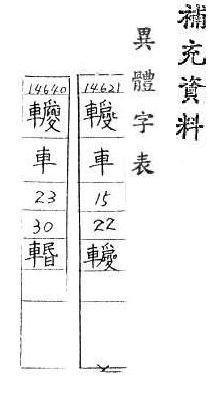 補充資料
異體字表
14621
車
15
22
14640
車
23
30